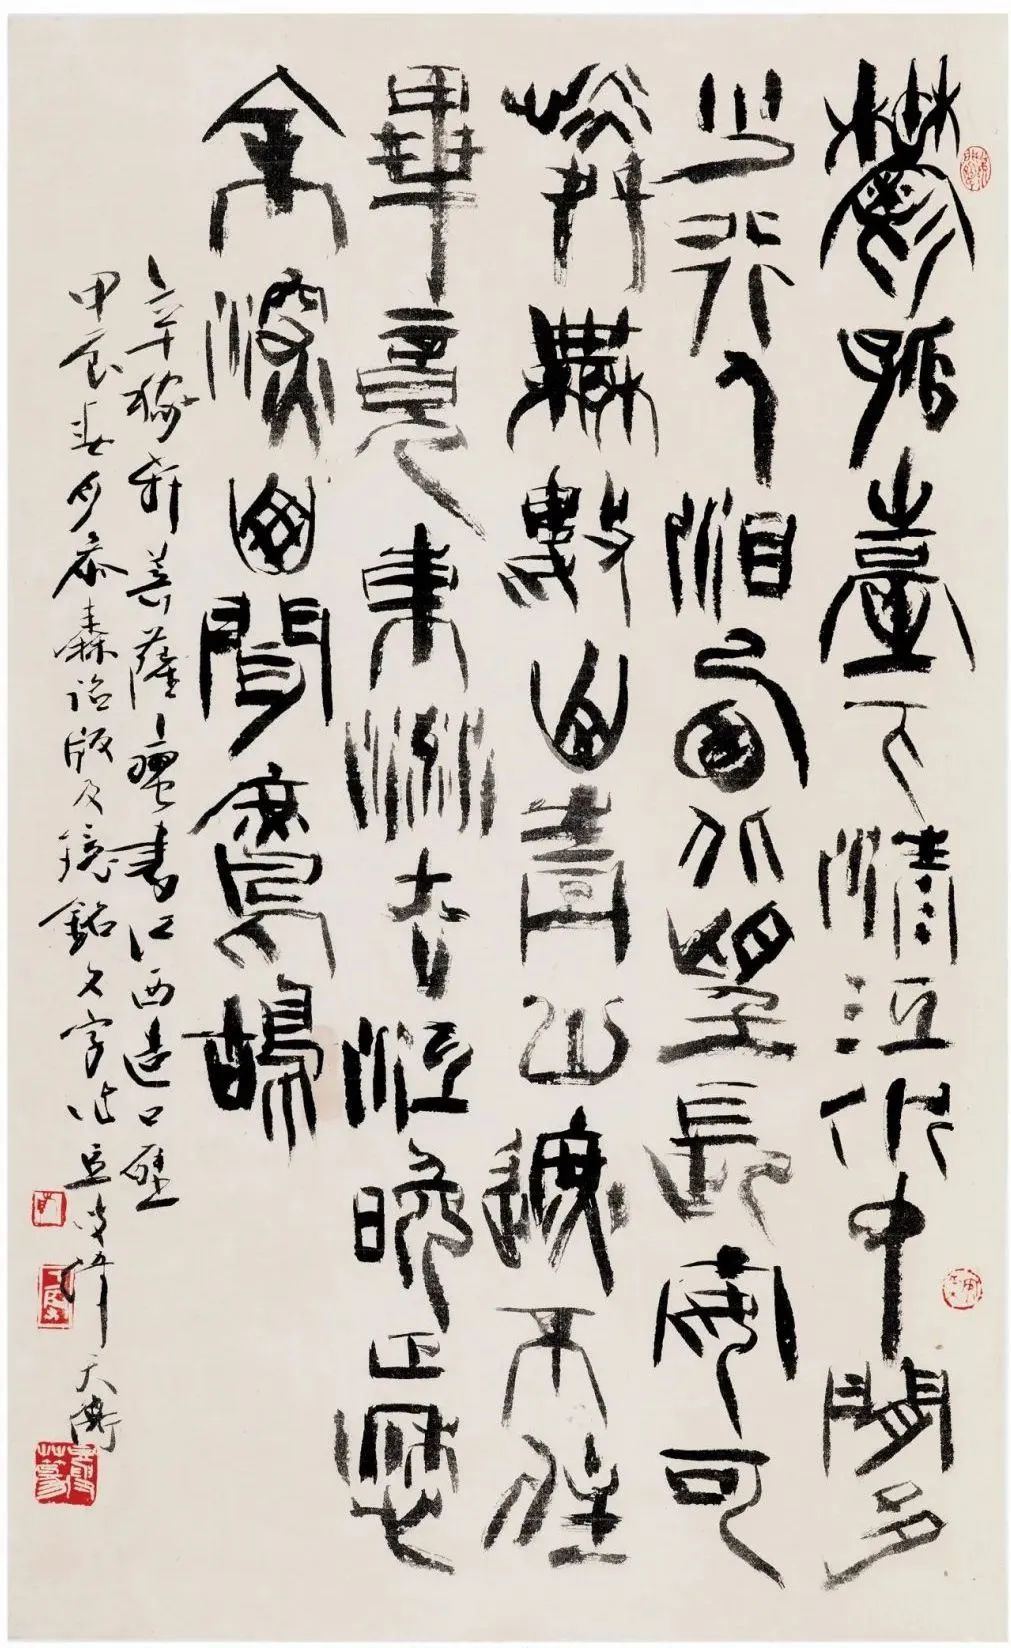 鬱孤臺下清江水中間多
少行人泪西北望長安可
憐無數山青山遮不住
畢竟東流去江晚正愁
余深山聞鷓鴣
辛稼軒菩薩蠻書江西造口壁
甲辰春月參秦詔版及鏡銘文字法豆 天衡